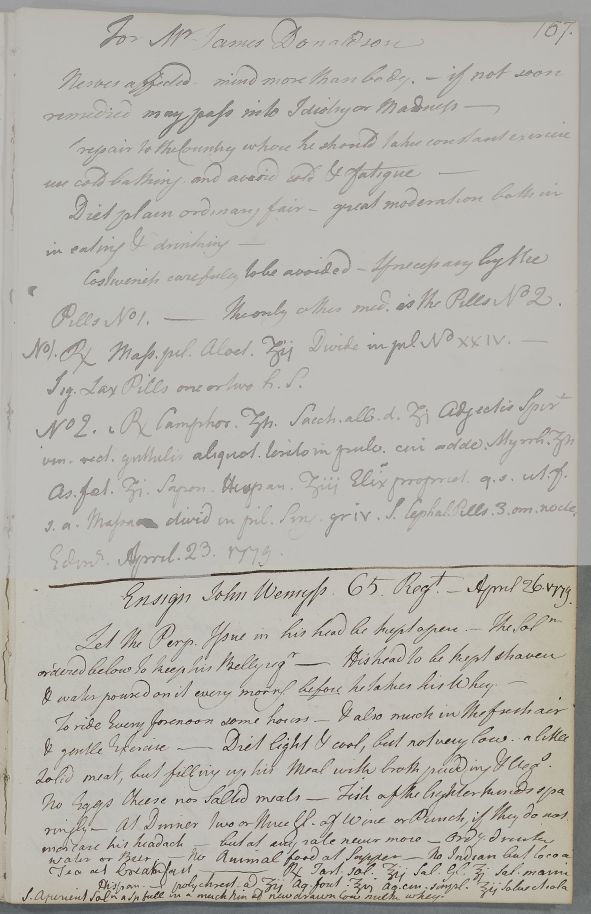 167.
For Mr. James Donaldson
Nerves affected mind more than body. – if not soon
remedied may pass into Idiotry or Madness –
repair to the Country where he should take constant exercise
use cold bathing and avoid cold & fatigue –
Diet plain ordinary fair – great moderation both in
in eating & drinking –
Costiveness carefully to be avoided – If necessary by the
Pills No 1. – The only other med. is the Pills No 2.
No 1. ℞ Mass. pil. Aloet. ʒij Divide in pil No XXIV. –
Sig. Lax Pills one or two h. S.
No 2. ℞ Camphor. ʒſs. Sacch. alb. d. ʒj Adjectis Spirt
vin. rect. guttulis aliquot. terito in pulv. cui adde. Myrrh. ʒſs
As. fet. ʒj. Sapon. Hispan. ʒiij Elixr propriet. q. s. ut. f.
s. a. Massa divid in pil. Sing. gr iv. S. Cephal. Pills. 3. om. nocte
Edinr. April. 23. 1779.
Ensign John Wemyss. 65. Regt. – April 26. 1779.
Let the Perp. Issue in his head be kept open. – The Soln
ordered below to keep his Belly regr – His head to be kept shaven
& water poured on it every morng before he takes his Whey –
To ride Every forenoon some hours – & also much in the fresh air
& gentle Exercise – Diet light & cool, but not very low. a little
Solid meat, but filling up his Meal with broth pudding & Vegs.
No Eggs Cheese nor Salted meats – Fish of the lighter kinds spa
ringly – At Dinner two or three Gl. of Wine or Punch, if they do not
increase his headach – but at any rate never more – Ordy. drink
water or Beer – No Animal food at Supper – No Indian but Cocoa
Tea at breakfast ℞ Tart. sol. ʒij Sal Gl. ʒj Sal. marin
Hispan. polychrest. ad ʒij Aq. font. ʒvj Aq. cin. simpl. ʒij Solve et cola
S. Aperient Soln a spfull in a mutchkin of new drawn cow milk whey.